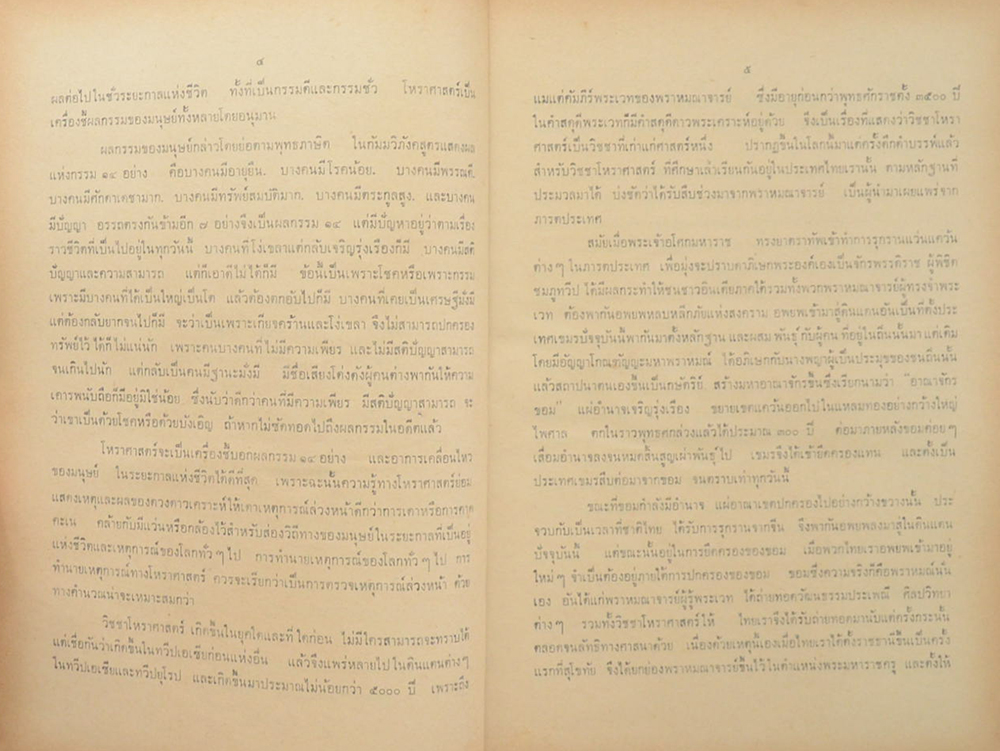 ๔
ผลต่อไปในชั่วระยะกาลแห่งชีวิต ทั้งที่เป็นกรรมดีและกรรมชั่ว โหราศาสตร์เป็น
เครื่องชี้ผลกรรมของมนุษย์ทั้งหลายโดยอนุมาน
ผลกรรมของมนุษย์กล่าวโดยย่อตามพุทธภาษิต ในกัมมวิภังคสูตรแสดงผล
แห่งกรรม ๑๔ อย่าง คือบางคนมีอายุยืน. บางคนมีโรคน้อย. บางคนมีพรรณดี.
บางคนมีศักดาเดชามาก. บางคนมีทรัพย์สมบัติมาก. บางคนมีตระกูลสูง. และบางคน
มีปัญญา อรรถตรงกันข้ามอีก ๗ อย่างจึงเป็นผลกรรม ๑๔ แต่มีปัญหาอยู่ว่าตามเรื่อง
ราวชีวิตที่เป็นไปอยู่ในทุกวันนี้ บางคนที่โง่เขลาแต่กลับเจริญรุ่งเรืองก็มี บางคนมีสติ
ปัญญาและความสามารถ แต่ก็เอาดีไม่ได้ก็มี ข้อนี้เป็นเพราะโชคหรือเพราะกรรม
เพราะมีบางคนที่ได้เป็นใหญ่เป็นโต แล้วต้องตกอับไปก็มี บางคนที่เคยเป็นเศรษฐีมั่งมี
แต่ต้องกลับยากจนไปก็มี จะว่าเป็นเพราะเกียจคร้านและโง่เขลา จึงไม่สามารถปกครอง
ทรัพย์ไว้ได้ก็ไม่แน่นัก เพราะคนบางคนที่ไม่มีความเพียร และไม่มีสติปัญญาสามารถ
จนเกินไปนัก แต่กลับเป็นคนมีฐานะมั่งมี มีชื่อเสียงโด่งดังผู้คนต่างพากันให้ความ
เคารพนับถือก็มีอยู่มิใช่น้อย ซึ่งนับว่าดีกว่าคนที่มีความเพียร มีสติปัญญาสามารถ จะ
ว่าเขาเป็นด้วยโชคหรือด้วยบังเอิญ ถ้าหากไม่ซัดทอดไปถึงผลกรรมในอดีตแล้ว
โหราศาสตร์จะเป็นเครื่องชี้บอกผลกรรม ๑๔ อย่าง และอาการเคลื่อนไหว
ของมนุษย์ ในระยะกาลแห่งชีวิตได้ดีที่สุด เพราะฉะนั้นความรู้ทางโหราศาสตร์ย่อม
แสดงเหตุและผลของดวงดาวเคราะห์ให้เดาเหตุการณ์ล่วงหน้าดีกว่าการเดาหรือการคาด
คะเน คล้ายกับมีแว่นหรือกล้องไว้สำหรับส่องวิถีทางของมนุษย์ในระยะกาลที่เป็นอยู่
แห่งชีวิตและเหตุการณ์ของโลกทั่วๆไป การทำนายเหตุการณ์ของโลกทั่วๆไป การ
ทำนายเหตุการณ์ทางโหราศาสตร์ ควรจะเรียกว่าเป็นการตรวจเหตุการณ์ล่วงหน้า ด้วย
ทางคำนวณน่าจะเหมาะสมกว่า
วิชชาโหราศาสตร์ เกิดขึ้นในยุคใดและที่ใดก่อน ไม่มีใครสามารถจะทราบได้
แต่เชื่อกันว่าเกิดขึ้นในทวีปเอเซียก่อนแห่งอื่น แล้วจึงแพร่หลายไปในดินแดนต่างๆ
ในทวีปเอเซียและทวีปยุโรป และเกิดขึ้นมาประมาณไม่น้อยกว่า ๕๐๐๐ ปี เพราะถึง
๕
แมแต่คัมภีร์พระเวทของพราหมณาจารย์ ซึ่งมีอายุก่อนกว่าพุทธศักราชตั้ง ๓๕๐๐ ปี
ในคำสดุดีพระเวทก็มีคำสดุดีดาวพระเคราะห์อยู่ด้วย จึงเป็นเรื่องที่แสดงว่าวิชชาโหรา
ศาสตร์เป็นวิชชาที่เก่าแก่ศาสตร์หนึ่ง ปรากฏขึ้นในโลกนี้มาแต่ครั้งดึกดำบรรพ์แล้ว
สำหรับวิชชาโหราศาสตร์ ที่ศึกษาเล่าเรียนกันอยู่ในประเทศไทยเรานั้น ตามหลักฐานที่
ประมวลมาได้ บ่งชัดว่าได้รับสืบช่วงมาจากพราหมณาจารย์ เป็นผู้นำมาเผยแพร่จาก
ภารตประเทศ
สมัยเมื่อพระเจ้าอโศกมหาราช ทรงยาตราทัพเข้าทำการรุกรานแว่นแคว้น
ต่างๆในภารตประเทศ เพื่อมุ่งจะปราบดาภิเษกพระองค์เองเป็นจักรพรรดิราช ผู้พิชิต
ชมภูทวีป ได้มีผลกระทำให้ชนชาวอินเดียภาคใต้รวมทั้งพวกพราหมณาจารย์ผู้ทรงจำพระ
เวท ต้องพากันอพยพหลบหลีกภัยแห่งสงคราม อพยพเข้ามาสู่ดินแดนอันเป็นที่ตั้งประ
เทศเขมรปัจจุบันนี้พากันมาตั้งหลักฐาน และผสมพันธุ์กับผู้คนที่อยู่ในถิ่นนั้นมาแต่เดิม
โดยมีอัญญาโกณฑัญญะมหาพราหมณ์ ได้อภิเษกกับนางพญาผู้เป็นประมุขของชนถิ่นนั้น
แล้วสถาปนาตนเองขึ้นเป็นกษัตริย์ สร้างมหาอาณาจักรขึ้นซึ่งเรียกนามว่า "อาณาจักร
ขอม" แผ่อำนาจเจริญรุ่งเรือง ขยายเขตแคว้นออกไปในแหลมทองอย่างกว้างใหญ่
ไพศาล ตกในราวพุทธศกล่วงแล้วได้ประมาณ ๓๐๐ ปี ต่อมาภายหลังขอมค่อยๆ
เสื่อมอำนาจลงจนหมดสิ้นสูญเผ่าพันธุ์ไป เขมรจึงได้เข้ายึดครองแทน และตั้งเป็น
ประเทศเขมรสืบต่อมาจากขอม จนตราบเท่าทุกวันนี้
ขณะที่ขอมกำลังมีอำนาจ แผ่อาณาเขตปกครองไปอย่างกว้างขวางนั้น ประ
จวบกับเป็นเวลาที่ชาติไทย ได้รับการรุกรานจากจีน จึงพากันอพยพลงมาสู่ในดินแดน
ปัจจุบันนี้ แต่ขณะนั้นอยู่ในการยึดครองของขอม เมื่อพวกไทยเราอพยพเข้ามาอยู่
ใหม่ๆ จำเป็นต้องอยู่ภายใต้การปกครองของขอม ขอมซึ่งความจริงก็คือพราหมณ์นั่น
เอง อันได้แก่พราหมณาจารย์ผู้รู้พระเวท ได้ถ่ายทอดวัฒนธรรมประเพณี ศิลปวิทยา
ต่างๆ รวมทั้งวิชชาโหราศาสตร์ให้ ไทยเราจึงได้รับถ่ายทอดมานับแต่ครั้งกระนั้น
ตลอดจนลัทธิทางศาสนาด้วย เนื่องด้วยเหตุนี้เองเมื่อไทยเราได้ตั้งราชธานีขึ้นเป็นครั้ง
แรกที่สุโขทัย จึงได้ยกย่องพราหมณาจารย์ขึ้นไว้ในตำแหน่งพระมหาราชครู และตั้งให้